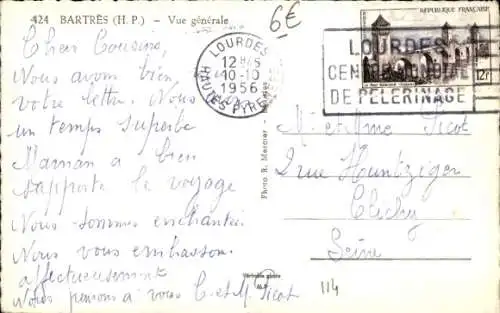 424 BARTRÈS (H. P.) - Vue générale
6€
Chers Cousins,
Nous avons bien
votre lettre. Nous
un temps superbe
Maman a bien
supporté le voyage
Nous sommes enchantés.
Nous vous embrassons
affectueusement
Nous pensons à vous C. et M. Picot
LOURDES
12H15
10-10
1956
HAUTES PYRENEES
REPUBLIQUE FRANÇAISE
12F
LOURDES
CENTRE MONDIAL
DE PELERINAGE
Photo R. Mercier
M. et Mme Picot
2 rue Huntziger
Clichy
Seine
Véritable photo
114